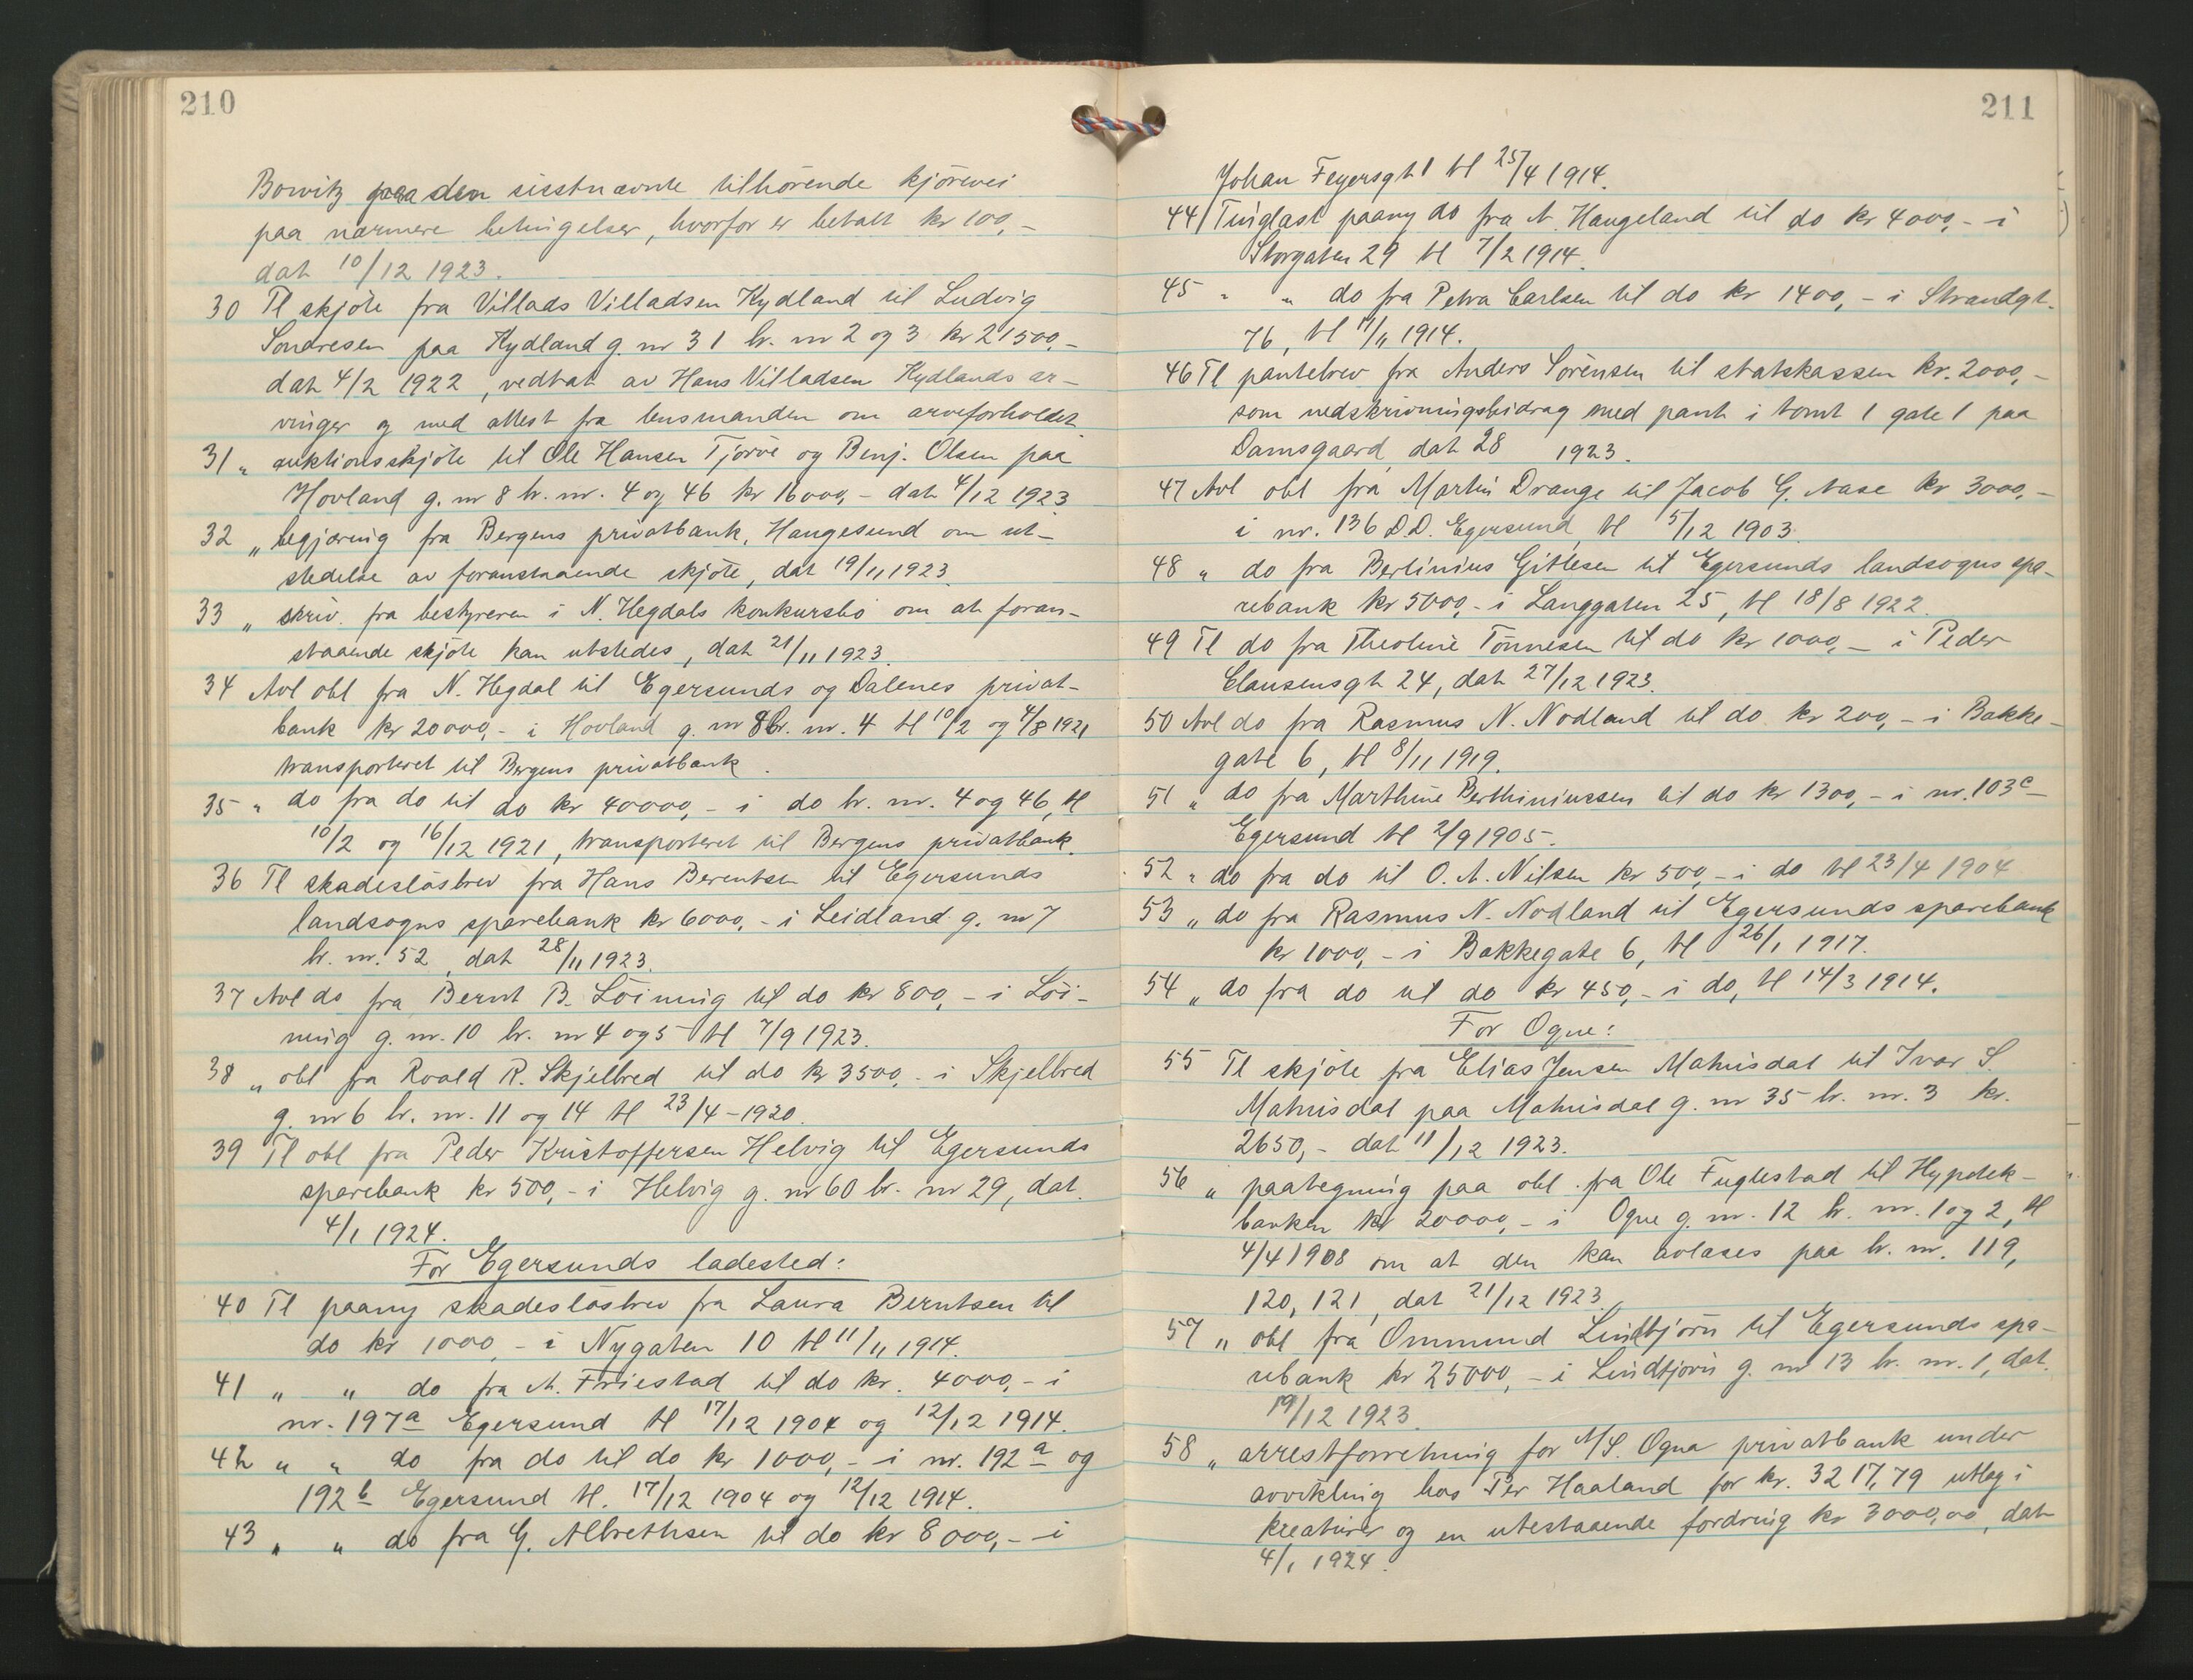 210
Bowitz paa den sisstnævnte tilhörende kjörevei
paa nærmere betingelser, hvorfor er betalt kr 100,-
dat 10/12 1923.
30 Tl skjöte fra Villads Villadsen Hydland til Ludvig
Sondresen paa Hydland g. nr 31 br. nr 2 og 3 kr 21500,-
dat 4/2 1922, vedtat av Hans Villadsen Hydlands ar-
vinger og med attest fra lensmanden om arveforholdet.
31 „ auktionsskjöte til Ole Hansen Tjörve og Benj. Olsen paa
Hovland g. nr 8 br. nr. 4 og 46 kr 16000,- dat 4/12 1923
32 „ begjæring fra Bergens privatbank, Haugesund om ut-
stedelse av foranstaaende skjöte, dat 19/11 1923.
33 „ skriv. fra bestyreren i N. Hegdals konkursbo om at foran-
staaende skjöte kan utstedes, dat 21/11 1923.
34 Avl obl fra N. Hegdal til Egersunds og Dalenes privat-
bank kr 20000,- i Hovland g. nr 8 br. nr. 4 tl 10/2 og 4/8 1921
transporteret til Bergens privatbank.
35 „ do fra do til do kr 40000,- i do br. nr. 4 og 46, tl
10/2 og 16/12 1921, transporteret til Bergens privatbank.
36 Tl skadeslösbrev fra Hans Berentsen til Egersunds
landsogns sparebank kr 6000,- i Leidland g. nr 7
br. nr. 52, dat 28/11 1923.
37 Avl do fra Bernt B. Löining til do kr 800,- i Löi-
ning g. nr. 10 br. nr 4 og 5 tl 7/9 1923.
38 „ obl fra Roald R. Skjelbred til do kr 3500,- i Skjelbred
g. nr 6 br. nr. 11 og 14 tl 23/4-1920.
39 Tl obl fra Peder Kristoffersen Helvig til Egersunds
sparebank kr 500,- i Helvig g. nr 60 br. nr 29, dat.
4/1 1924.
For Egersunds ladested:
40 Tl paany skadeslösbrev fra Laura Berntsen til
do kr 1000,- i Nygaten 10 tl 11/11 1914.
41 „ „ do fra A. Friestad til do kr. 4000,- i
nr. 197a Egersund tl 17/12 1904 og 12/12 1914.
42 „ „ do fra do til do kr 1000,- i nr. 192a og
192b Egersund tl. 17/12 1904 og 12/12 1914.
43 „ „ do fra G. Albrethsen til do kr 8000,- i
211
Johan Feyersgt 1 tl 25/4 1914.
44 Tinglæst paany do fra A. Haugeland til do kr 4000,- i
Storgaten 29 tl 7/2 1914.
45 „ „ do fra Petra Carlsen til do kr 1400,- i Strandgt.
76, tl 17/11 1914.
46 Tl pantebrev fra Anders Sörensen til statskassen kr. 2000,-
som nedskrivningsbidrag med pant i tomt 1 gate 1 paa
Damsgaard, dat 28 1923.
47 Avl obl fra Martin Drange til Jacob G. Aase kr 3000,-
i nr. 136 D.D. Egersund, tl 5/12 1903.
48 „ do fra Berlinius Gitlesen til Egersunds landsogns spa-
rebank kr 5000,- i Langgaten 25, tl 18/8 1922.
49 Tl do fra Theoline Tönnesen til do kr 1000,- i Peder
Clausensgt 24, dat 27/12 1923.
50 Avl do fra Rasmus N. Nodland til do kr 200,- i Bakke-
gate 6, tl 8/11 1919.
51 „ do fra Marthine Berthiniussen til do kr 1300,- i nr. 103c
Egersund tl 2/9 1905.
52 „ do fra do til O. A. Nilsen kr 500,- i do tl 23/4 1904
53 „ do fra Rasmus N. Nodland til Egersunds sparebank
kr 1000,- i Bakkegate 6, tl 26/1 1917.
54 „ do fra do til do kr 450,- i do, tl 14/3 1914.
For Ogne:
55 Tl skjöte fra Elias Jensen Matnisdal til Ivar S.
Matnisdal paa Matnisdal g. nr 35 br. nr. 3 kr.
2650,- dat 11/12 1923.
56 „ paategning paa obl. fra Ole Fuglestad til Hypotek-
banken kr 20000,- i Ogne g. nr. 12 br. nr. 1 og 2, tl
4/4 1908 om at den kan avlæses paa br. nr. 119,
120, 121, dat 21/12 1923.
57 „ obl fra Ommund Lindtjörn til Egersunds spa-
rebank kr 25000,- i Lindtjörn g. nr 13 br. nr. 1, dat.
19/12 1923.
58 „ arrestforretning for A/S. Ogna privatbank under
avvikling hos Per Haaland for kr. 3217,79 utlæg i
kreaturer og en utestaaende fordring kr 3000,00, dat
4/1 1924.